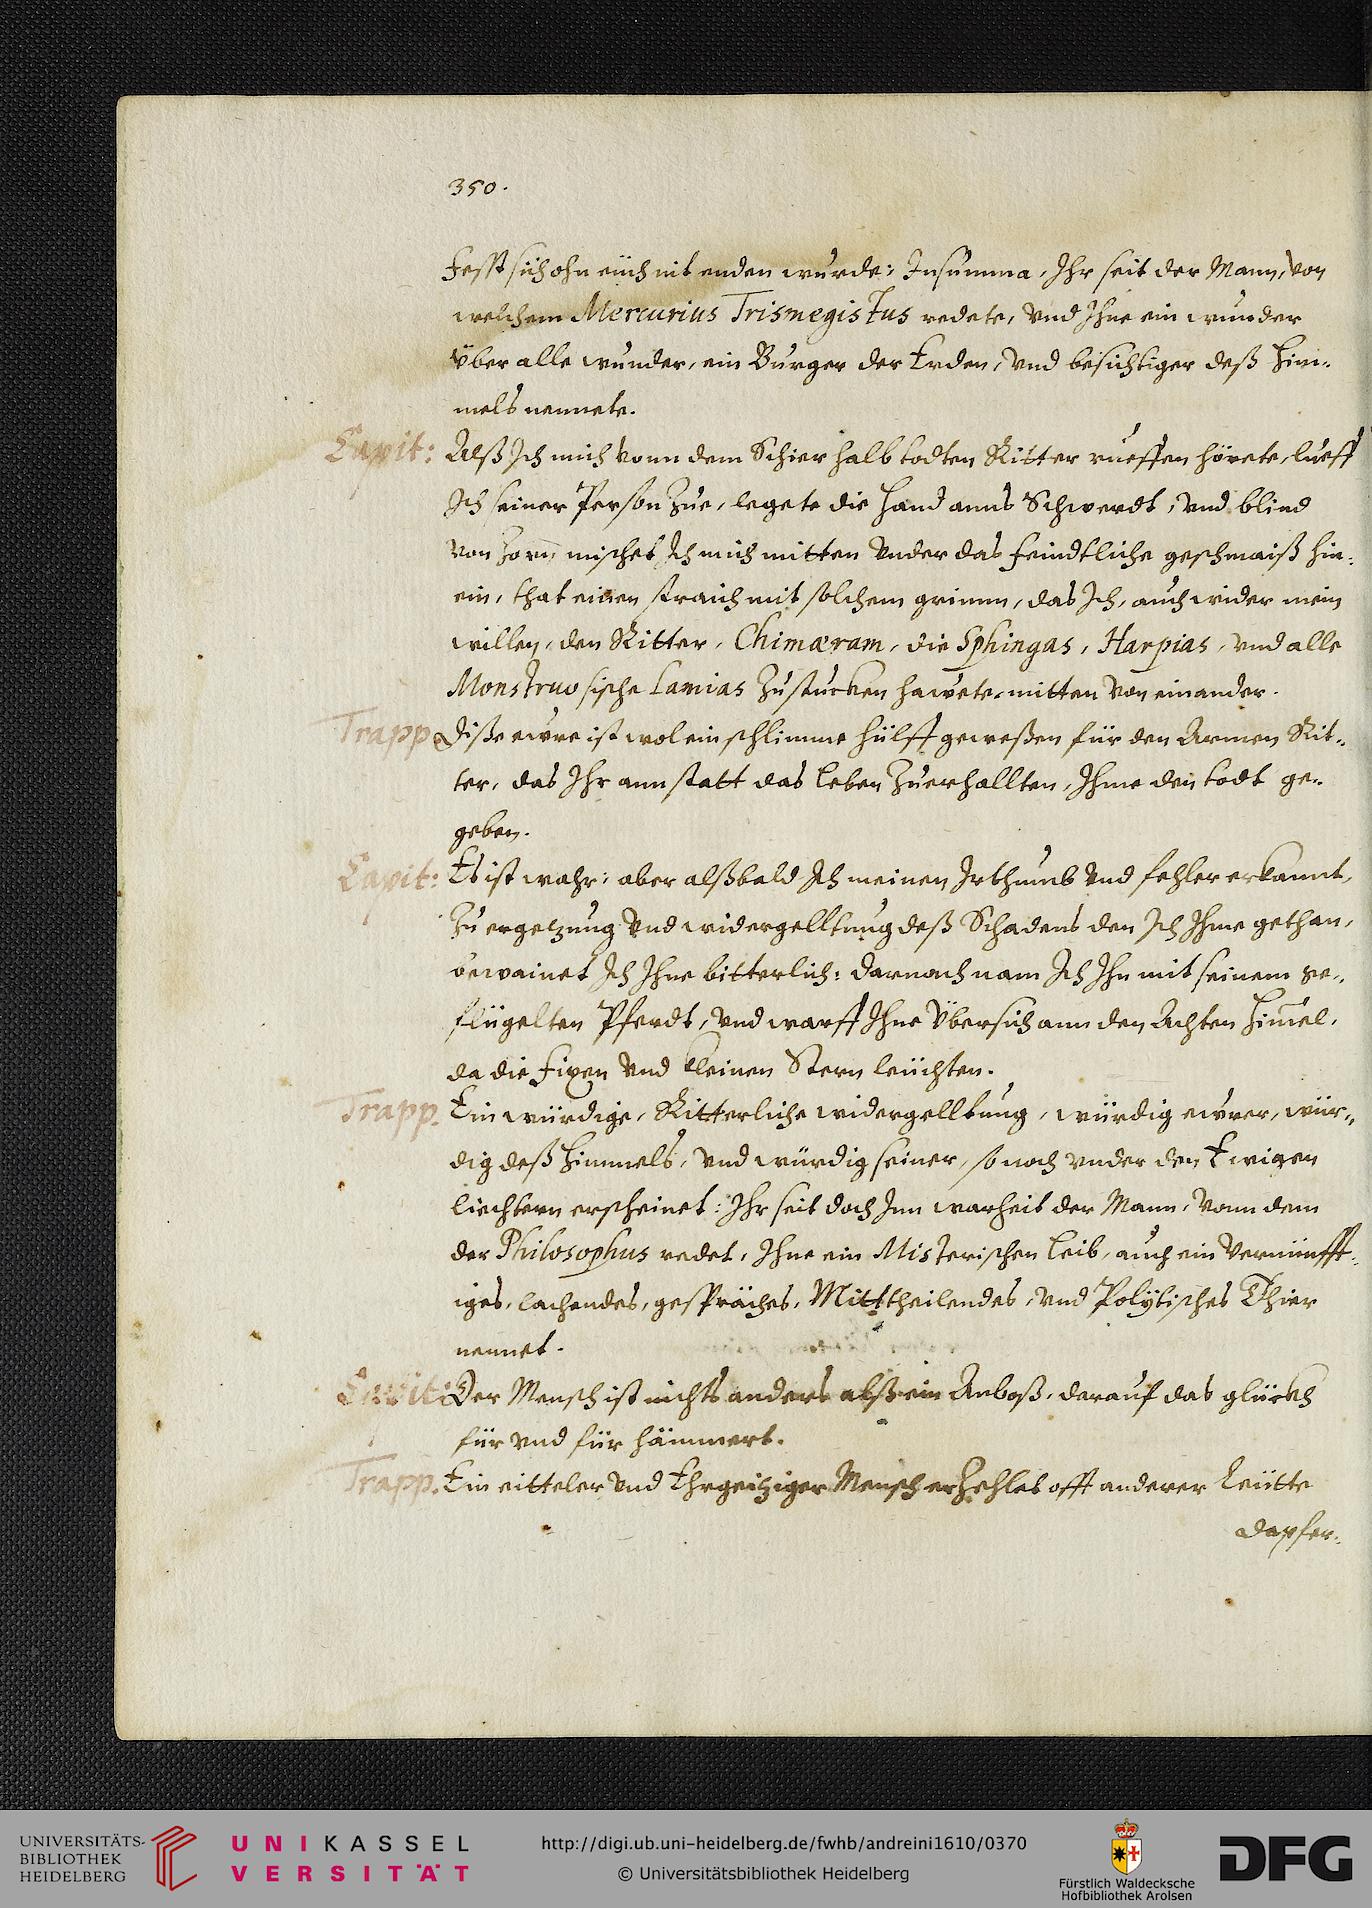 350.
Fesst sich ohn eüch nit enden wurde: Insumma, Ihr seit der Mann, von
welchem Mercurius Trismegistus redete, vnd Ihne ein wunder
über alle wunder, ein Burger der Erden, vnd besichtiger deß Him-
mels nennete.
Capit: Alß Ich mich vonn dem Schier halb todten Ritter rueffen hörete, lueff
Ich seiner Person zue, legete die Hand anns Schwerdt, vnd blind
von Zorn, mischet Ich mich mitten vnder das feindtliche geschmaiß hin-
ein, that einen straich mit solchem grimm, das Ich, auch wider mein
willen, den Ritter, Chimæram, die Sphingas, Harpias, vnd alle
Monstruosische Lamias zu stucken hawete, mitten von einander.
Trapp. Diße ewre ist wol ein schlimme hülff geweßen für den Armen Rit-
ter, das Ihr ann statt das leben zuerhallten, Ihme den todt ge-
geben.
Capit: Es ist wahr: aber alßbald Ich meinen Irthumb vnd fehler erkannt,
zu ergetzung vnd widergelltung deß Schadens den Ich Ihme gethan,
bewainet Ich Ihne bitterlich: darnach nam Ich Ihn mit seinem ge-
flügelten Pferdt, vnd warff Ihne übersich ann den Achten Himel,
da die fixen vnd kleinen Stern leüchten.
Trapp. Ein würdige, Ritterliche widergelltung, würdig ewrer, wür-
dig deß Himmels, vnd würdig seiner, so noch vnder den Ewigen
liechtern erscheinet: Ihr seit doch Inn warheit der Mann, vonn dem
der Philosophus redet, Ihne ein Misterischen leib, auch ein vernünfft-
iges, lachendes, gespräches, Mittheilendes, vnd Polytisches Thier
nennet.
Capit: Der Mensch ist nichts anders alß ein Anboß, darauf das glückh
für vnd für hämmert.
Trapp. Ein eitteler vnd Ehrgeitziger Mensch erzehlet offt anderer Leütte
dapfer-
UNIVERSITÄTS-
BIBLIOTHEK
HEIDELBERG
UNIKASSEL
VERSITÄT
http://digi.ub.uni-heidelberg.de/fwhb/andreini1610/0370
© Universitätsbibliothek Heidelberg
Fürstlich Waldecksche
Hofbibliothek Arolsen
DFG